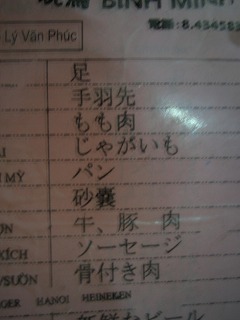 BINH MINH
電話: 8.434583
Lý Văn Phúc
足
手羽先
もも肉
じゃがいも
パン
砂嚢
牛、豚 肉
XÍCH ソーセージ
/SƯỜN 骨付き肉
HANOI HEINEKEN